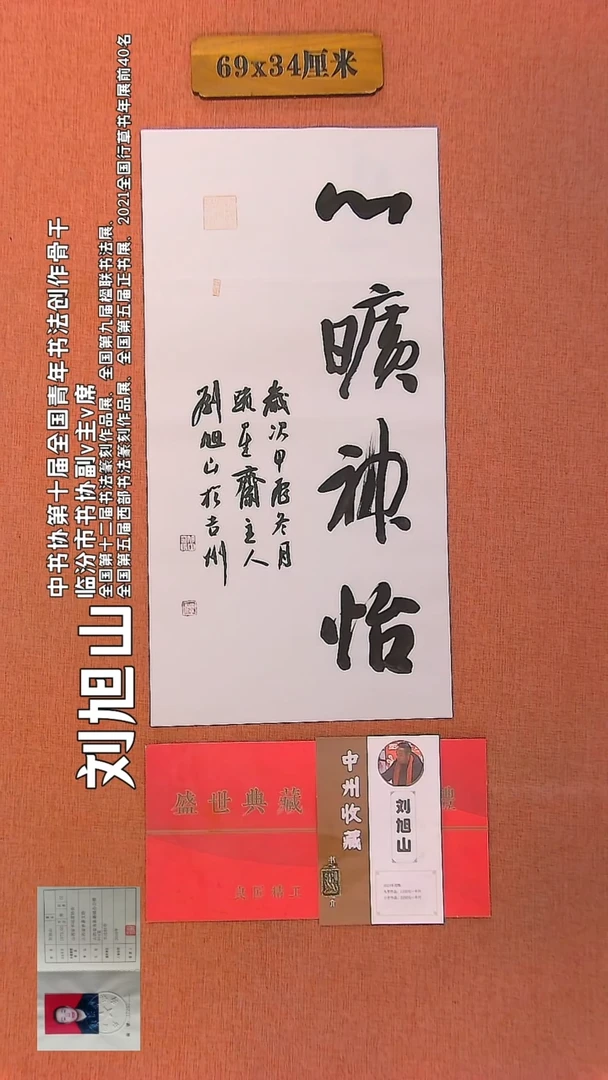 69x34厘米
心曠神怡
歲次甲辰冬月
主人
劉旭山於吉州
刘旭山
中书协第十届全国青年书法创作骨干
临汾市书协副v主v席
全国第十二届书法篆刻作品展、全国第九届楹联书法展、
全国第五届西部书法篆刻作品展、全国第五届正书展、2021全国行草书年展前40名
盛世典藏
中州收藏
刘旭山